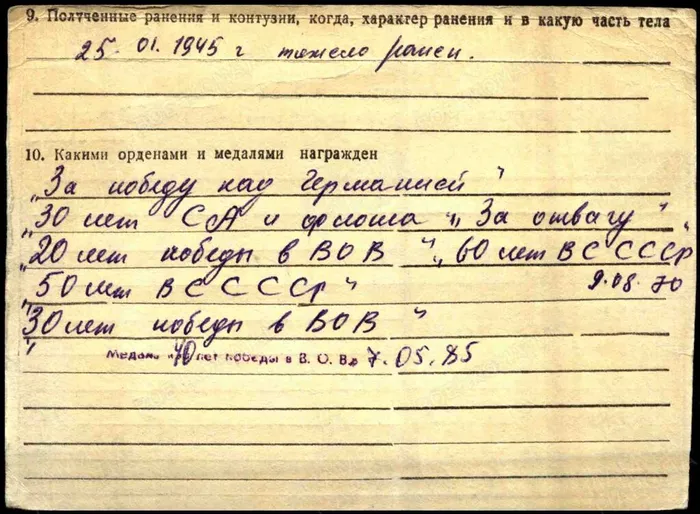 9. Полученные ранения и контузии, когда, характер ранения и в какую часть тела
25. 01. 1945 г тяжело ранен.
10. Какими орденами и медалями награжден
„За победу над Германией"
„30 лет СА и флота" „За отвагу"
„20 лет победы в ВОВ" „60 лет ВС СССР"
„50 лет ВС СССР" 9.08.70
„30 лет победы в ВОВ"
Медаль «40 лет победы в В. О. В.» 7.05.85